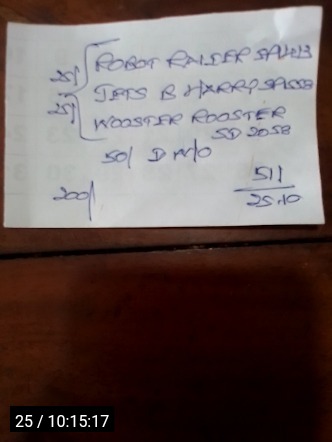 25/ ROBOT RAIDER SA
JETS B HARRY
25/ WOOSTER ROOSTER
SD 2058
50/ D M/O
511
200/
25.10
25 / 10:15:17